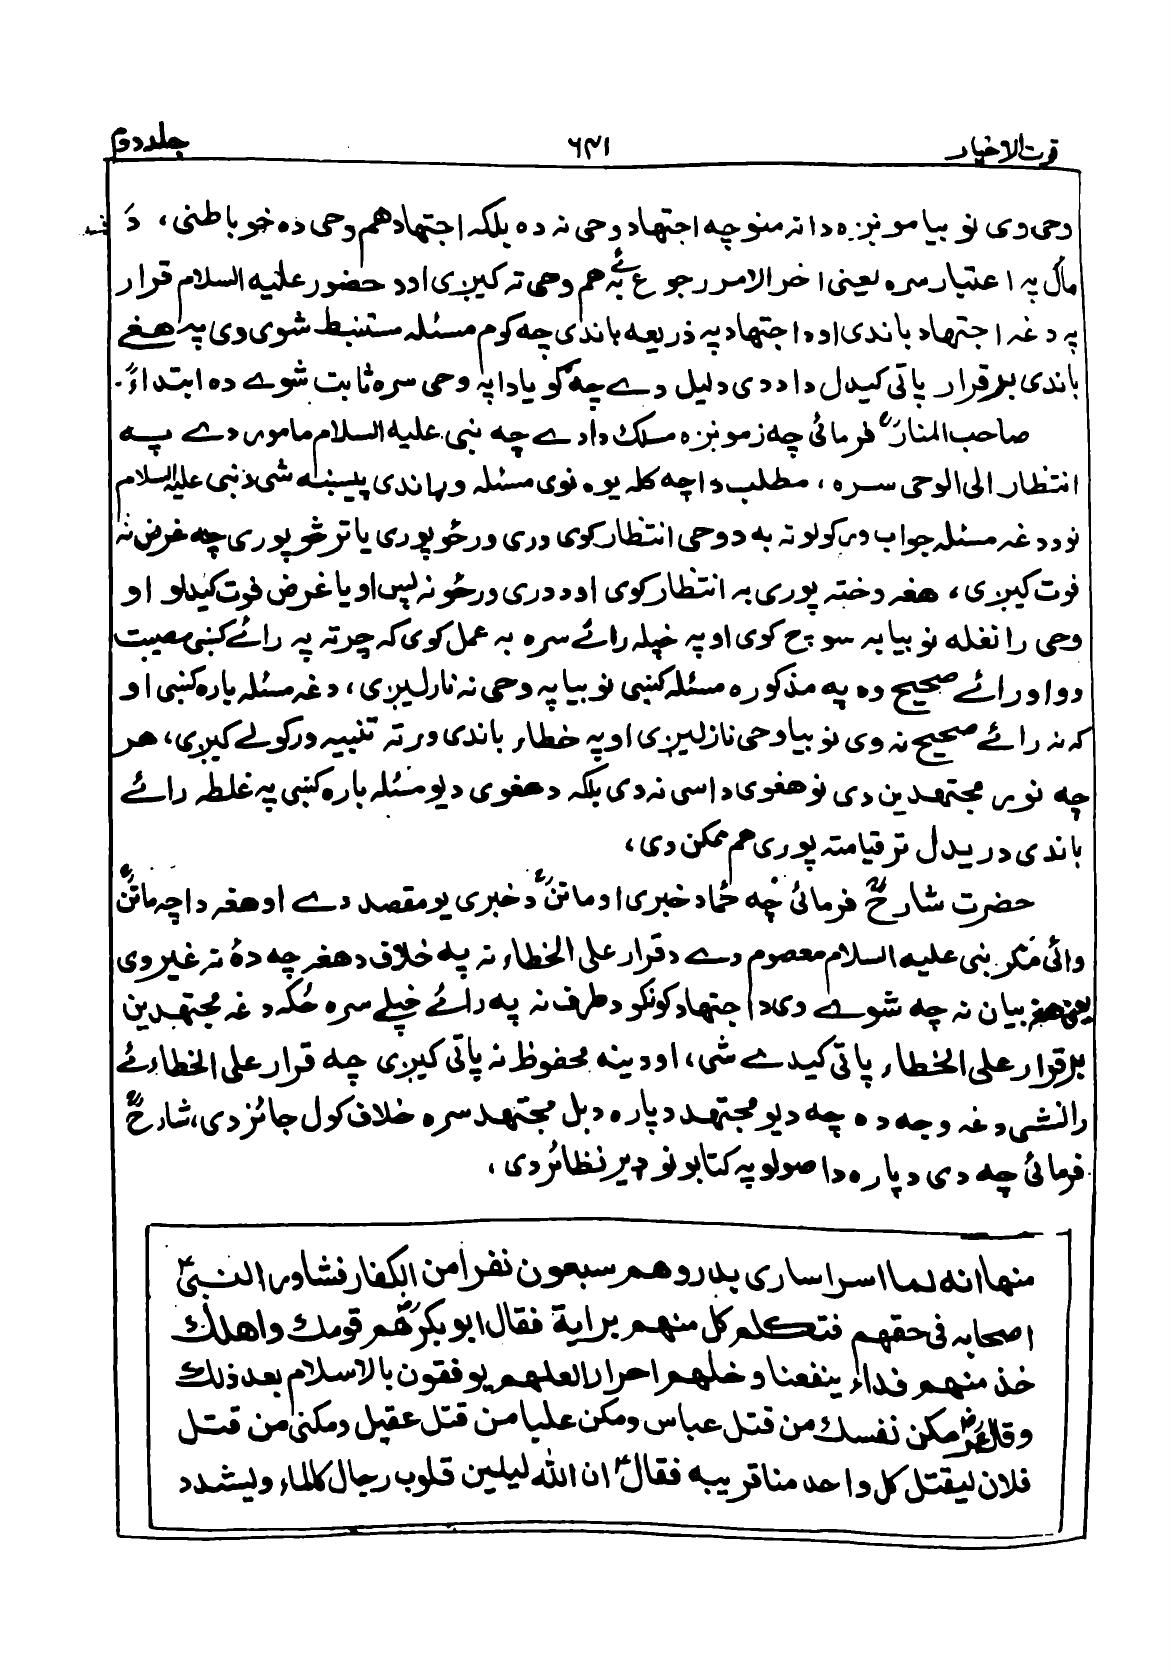 قوت الاخیار ۶۴۱ جلد دوم
وحی وی نو بیا مونږه دا نه منو چه اجتهاد وحی نه ده بلکه اجتهاد هم وحی ده خو باطنی، دَ
مآل په اعتبار سره یعنی اخر الامر رجوع ئے به هم وحی ته کیږی او د حضور علیه السلام قرار
په دغه اجتهاد باندی او د اجتهاد په ذریعه باندی چه کوم مسئله مستنبط شوی وی په هغے
باندی برقرار پاتی کیدل دا ددی دلیل دے چه گویا دا په وحی سره ثابت شوے ده ابتداءً۔
صاحب المنارؒ فرمائی چه زمونږه مسلک دادے چه نبی علیه السلام مامور دے په
انتظار الی الوحی سره، مطلب دا چه کله یوه نوی مسئله ورباندی پیښه شی د نبی علیه السلام
نو د دغه مسئله جواب ورکولو ته به د وحی انتظار کوی دری ورځو پوری یا تر څو پوری چه غرض نه
فوت کیږی، هغه وخته پوری به انتظار کوی او د دری ورځو نه پس او یا غرض فوت کیدلو او
وحی را نغله نو بیا به سوچ کوی او په خپله رائے سره به عمل کوی که چرته په رائے کښی مصیبت
وو او رائے صحیح وه په مذکوره مسئله کښی نو بیا په وحی نه نازلیږی، دغه مسئله باره کښی او
که نه رائے صحیح نه وی نو بیا وحی نازلیږی او په خطاء باندی ورته تنبیه ورکولے کیږی، هر
چه نور مجتهدین دی نو هغوی داسی نه دی بلکه د هغوی د یو مسئله باره کښی په غلطه رائے
باندی دریدل تر قیامته پوری هم ممکن دی،
حضرت شارحؒ فرمائی چه ځما د خبری او ماتنؒ د خبری یو مقصد دے او هغه دا چه ماتنؒ
وائی مگر نبی علیه السلام معصوم دے د قرار علی الخطاء نه په خلاف د هغه چه دۀ نه غیر وی
یعنی هغه بیان نه چه شوے وی د اجتهاد کونکو د طرف نه په رائے خپلے سره ځکه دغه مجتهدین
برقرار علی الخطاء پاتی کیدے شی، او دینه محفوظ نه پاتی کیږی چه قرار علی الخطاء ئے
رانشی دغه وجه ده چه د یو مجتهد دپاره د بل مجتهد سره خلاف کول جائز دی، شارحؒ
فرمائی چه دی دپاره د اصولو په کتابونو ډیر نظائر دی،
منها انه لما اسر اساری بدر وهم سبعون نفرا من الکفار فشاور النبیؐ
اصحابه فی حقهم فتکلم کل منهم برایة فقال ابوبکرؓ هم قومك واهلك
خذ منهم فداء ینفعنا وخلهم احرار العلهم یوفقون بالاسلام بعد ذلك
وقال عمرؓ مکن نفسك من قتل عباس ومکن علیا من قتل عقیل ومکنی من قتل
فلان لیقتل کل واحد منا قریبه فقالؐ ان الله لیلین قلوب رجال کالماء ولیشدد